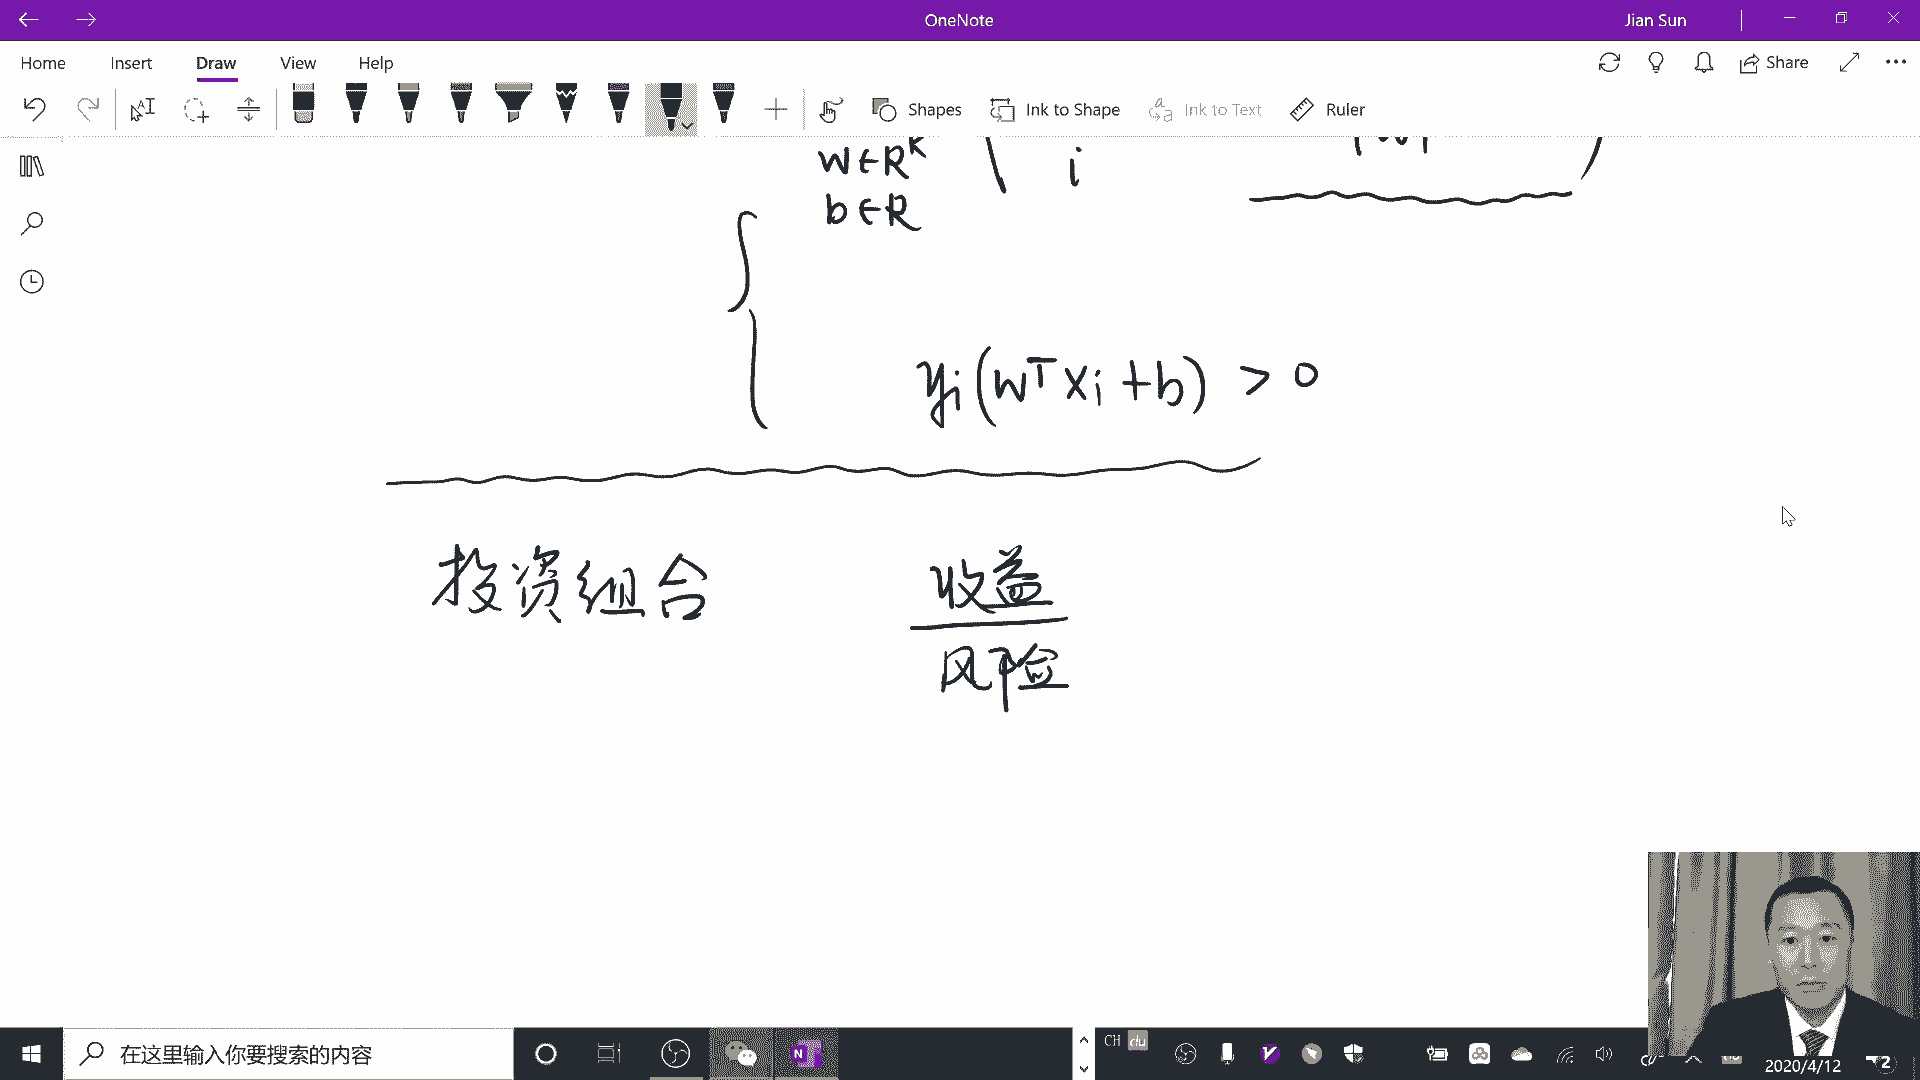 OneNote
Jian Sun
Home Insert Draw View Help
Share
Shapes Ink to Shape Ink to Text Ruler
w∈R^K i
b∈R
y_i(w^T x_i + b) > 0
投资组合 收益
风险
在这里输入你要搜索的内容
CH du
2020/4/12 2